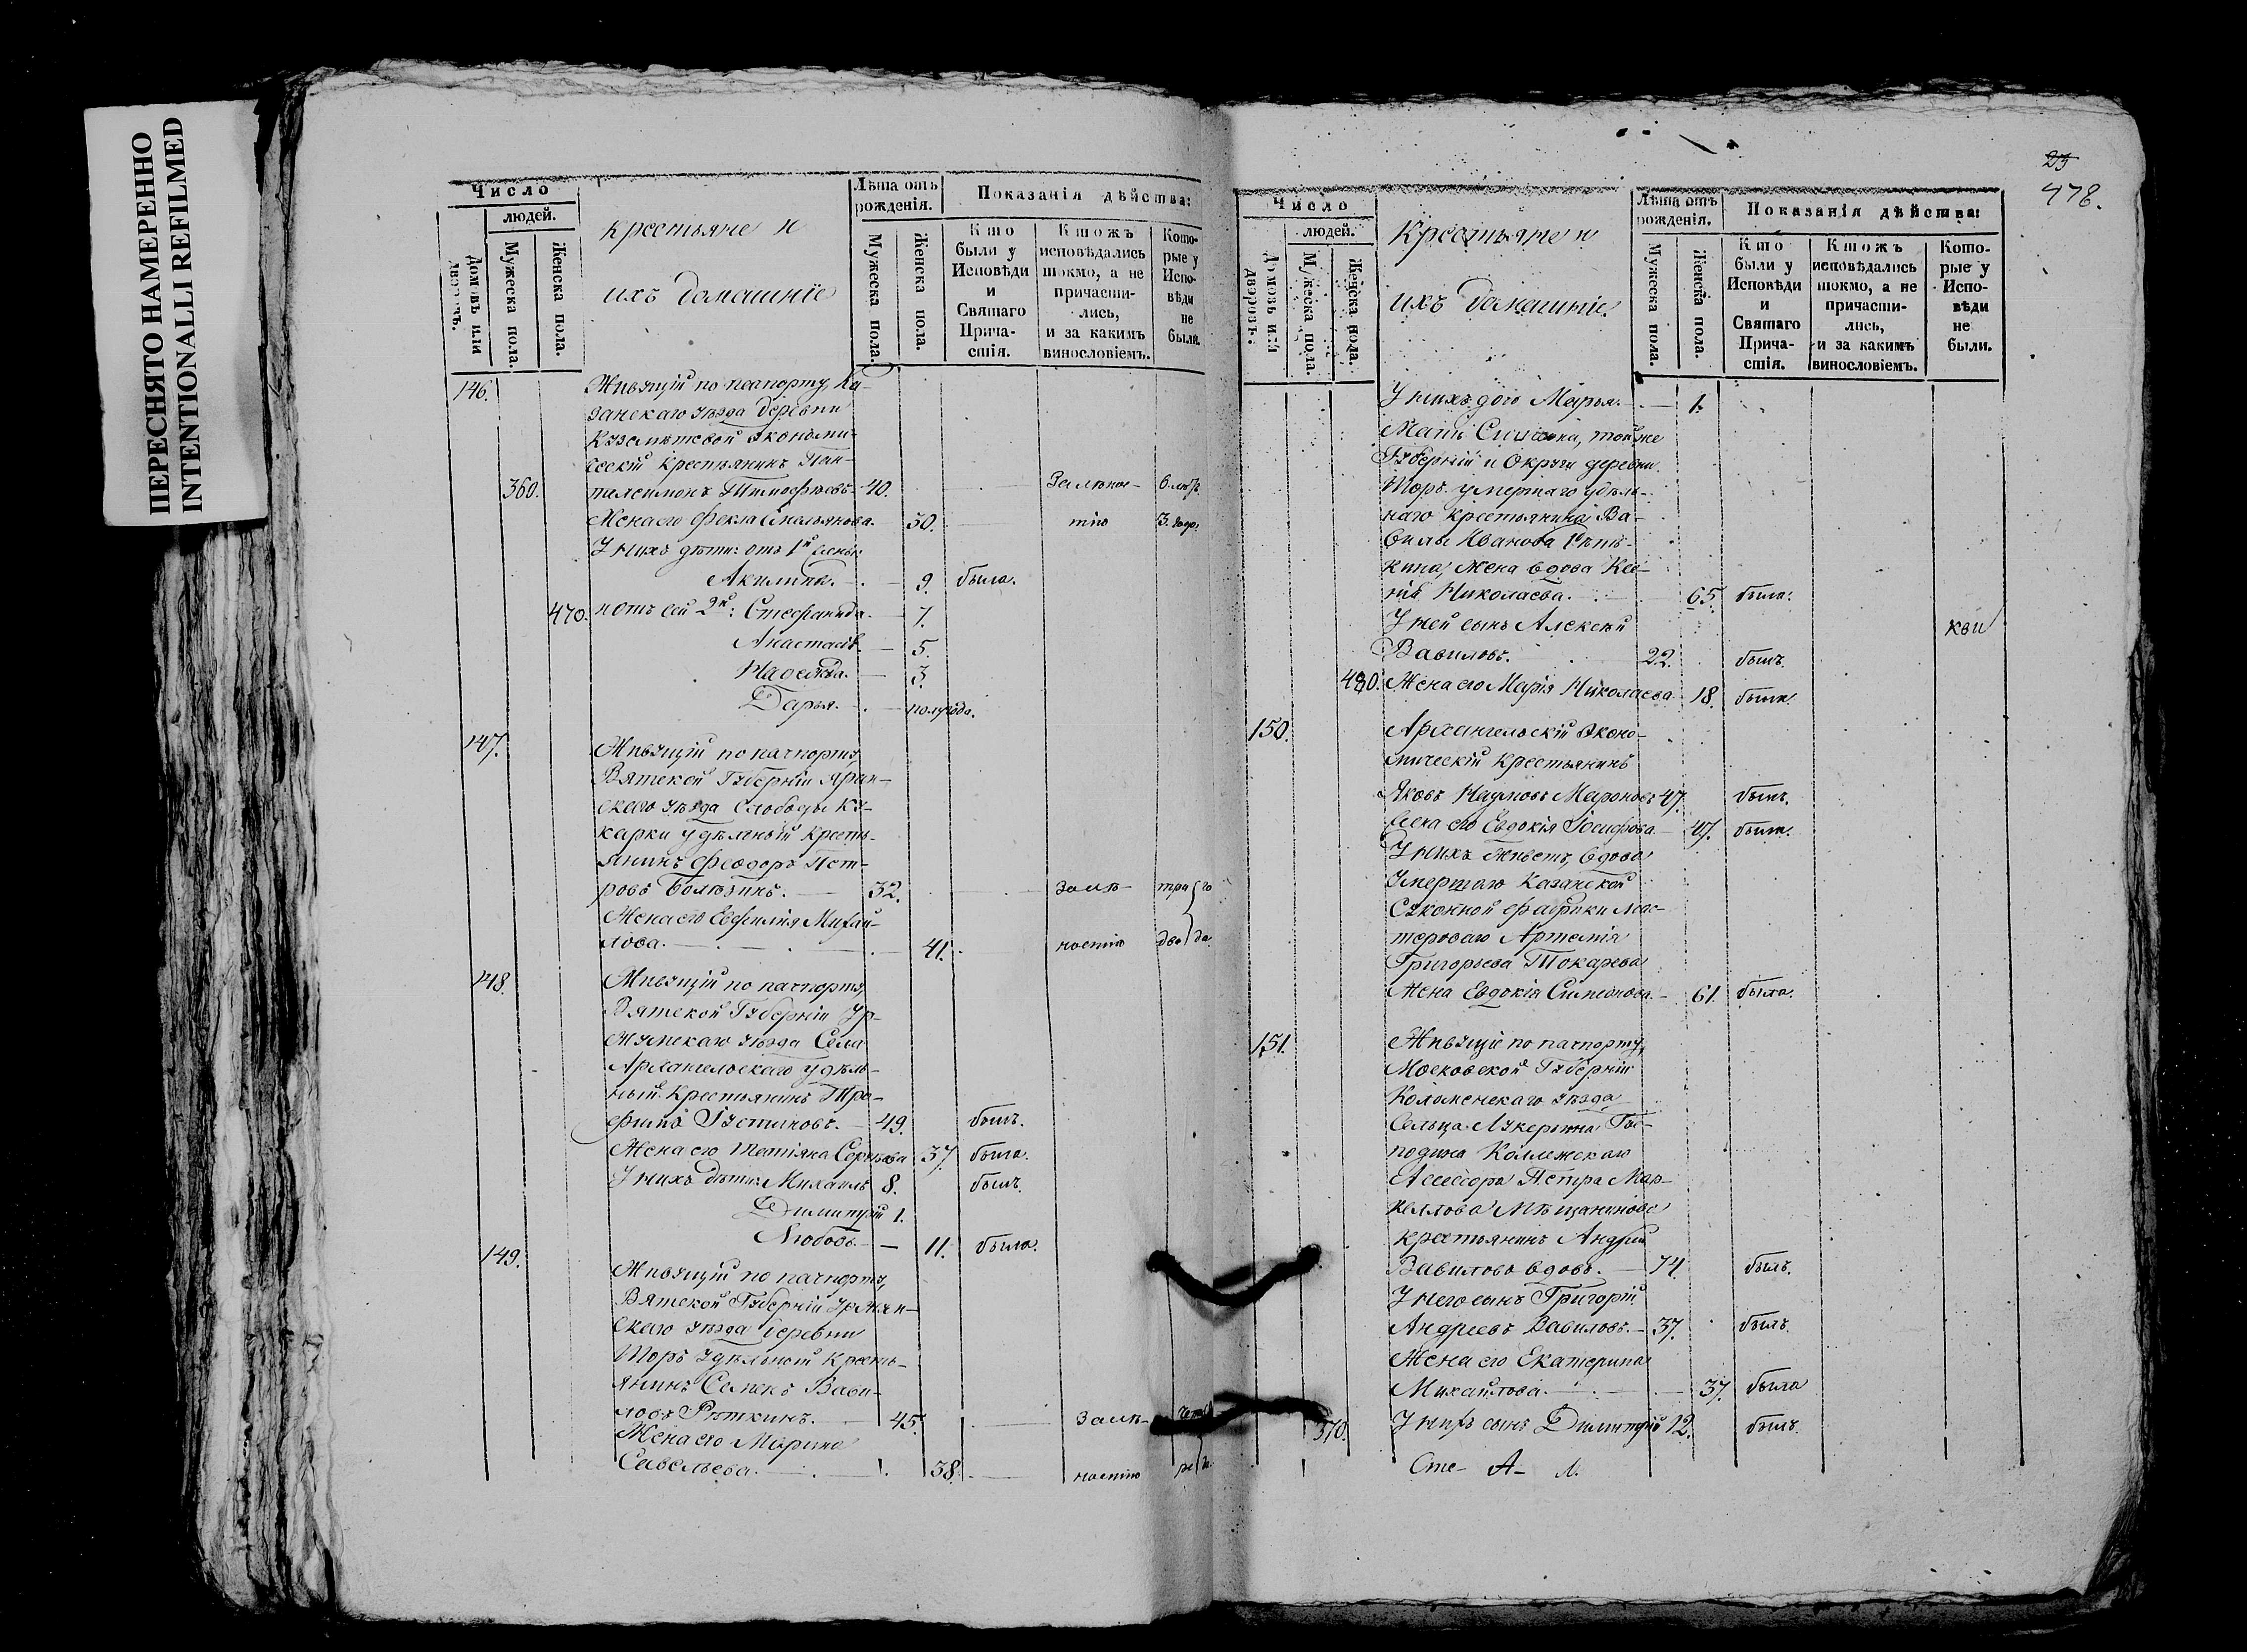 ПЕРЕСНЯТО НАМЕРЕННО
INTENTIONALLI REFILMED
Число
людей.
Домовъ или дворовъ.
Мужеска пола.
Женска пола.
крестьяне и
ихъ домашніе
Лѣта отъ рожденія.
Мужеска пола.
Женска пола.
Показанія дѣйства:
Кто были у Исповѣди и Святаго Прича-стія.
Ктожъ исповѣдались токмо, а не причасти-лись, и за какимъ винословіемъ.
Кото-рые у Испо-вѣди не были.
146. Живущій по пачпорту Ка-
занскаго уѣзда деревни
Экономи-
ческій крестьянинъ Пан-
360. телеимонъ Тимофѣевъ 40. Залѣнос- 6. лѣтъ
Жена его Фекла Емельянова. 30. тію 3. года
У нихъ дѣти: отъ 1й жены:
Акилина. 9. была.
470. и отъ сей 2й: Стефанида. 7.
Анастасія. 5.
Надежда. 3.
Дарья. полугода.
147. Живущій по пачпорту
Вятской Губерніи Яран-
скаго уѣзда Слободы Ку-
карки удѣльный кресть-
янинъ Феодоръ Пет-
ровъ 32. залѣ- три го
Жена его Евфимія Михай-
лова. 41. ностію два да
148. Живущій по пачпорту,
Вятской Губерніи Ур-
жумскаго уѣзда Села
Архангельскаго удѣль-
ный Крестьянинъ Тро-
фимъ Іустиновъ. 49. былъ.
Жена его Татіана Сергѣева 37. была.
У нихъ дѣти: Михаилъ 8. былъ.
Димитрій 1.
Любовь. 11. была.
149. Живущій по пачпорту,
Вятской Губерніи Уржум-
скаго уѣзда деревни
Шоръ Удѣльной Кресть-
янинъ Семенъ Вави-
ловъ Рѣткинъ. 45. Залѣ-
Жена его Марина
Савельева. 38. ностію
23
478.
Число
людей.
Домовъ или дворовъ.
Мужеска пола.
Женска пола.
Крестьяне и
ихъ домашніе
Лѣта отъ рожденія.
Мужеска пола.
Женска пола.
Показанія дѣйства:
Кто были у Исповѣди и Святаго Прича-стія.
Ктожъ исповѣдались токмо, а не причасти-лись, и за какимъ винословіемъ.
Кото-рые у Испо-вѣди не были.
У нихъ дочь Марья. 1.
Мать Симеона, той же
Губерніи и Округи деревни
Шоръ умершаго удѣль-
наго крестьянина Ва-
вилы Иванова Рѣт-
кина, жена вдова Ксе-
нія Николаева. 65. была.
У ней сынъ Алексѣй
Вавиловъ. 22. былъ.
480. Жена его Марія Николаева 18. была.
150. Архангельскій Эконо-
мическій крестьянинъ
Яковъ Наумовъ Мироновъ 47. былъ.
Жена его Евдокія Іосифова 47. была.
У нихъ живетъ, вдова
умершаго Казанской
Суконной фабрики мас-
тероваго Артемія
Григорьева Токарева
Жена Евдокія Симеонова. 61. была.
151. Живущіе по пачпорту,
Московской Губерніи
Коломенскаго уѣзда,
Сельца Гос-
подина Коллежскаго
Асессора Петра Мар-
келлова Мѣщанинова
крестьянинъ Андрей
Вавиловъ вдовъ. 74. былъ.
У него сынъ Григорій
Андреевъ Вавиловъ. 37. былъ.
Жена его Екатерина
Михайлова. 37. была
370. У нихъ сынъ Димитрій 12. былъ.